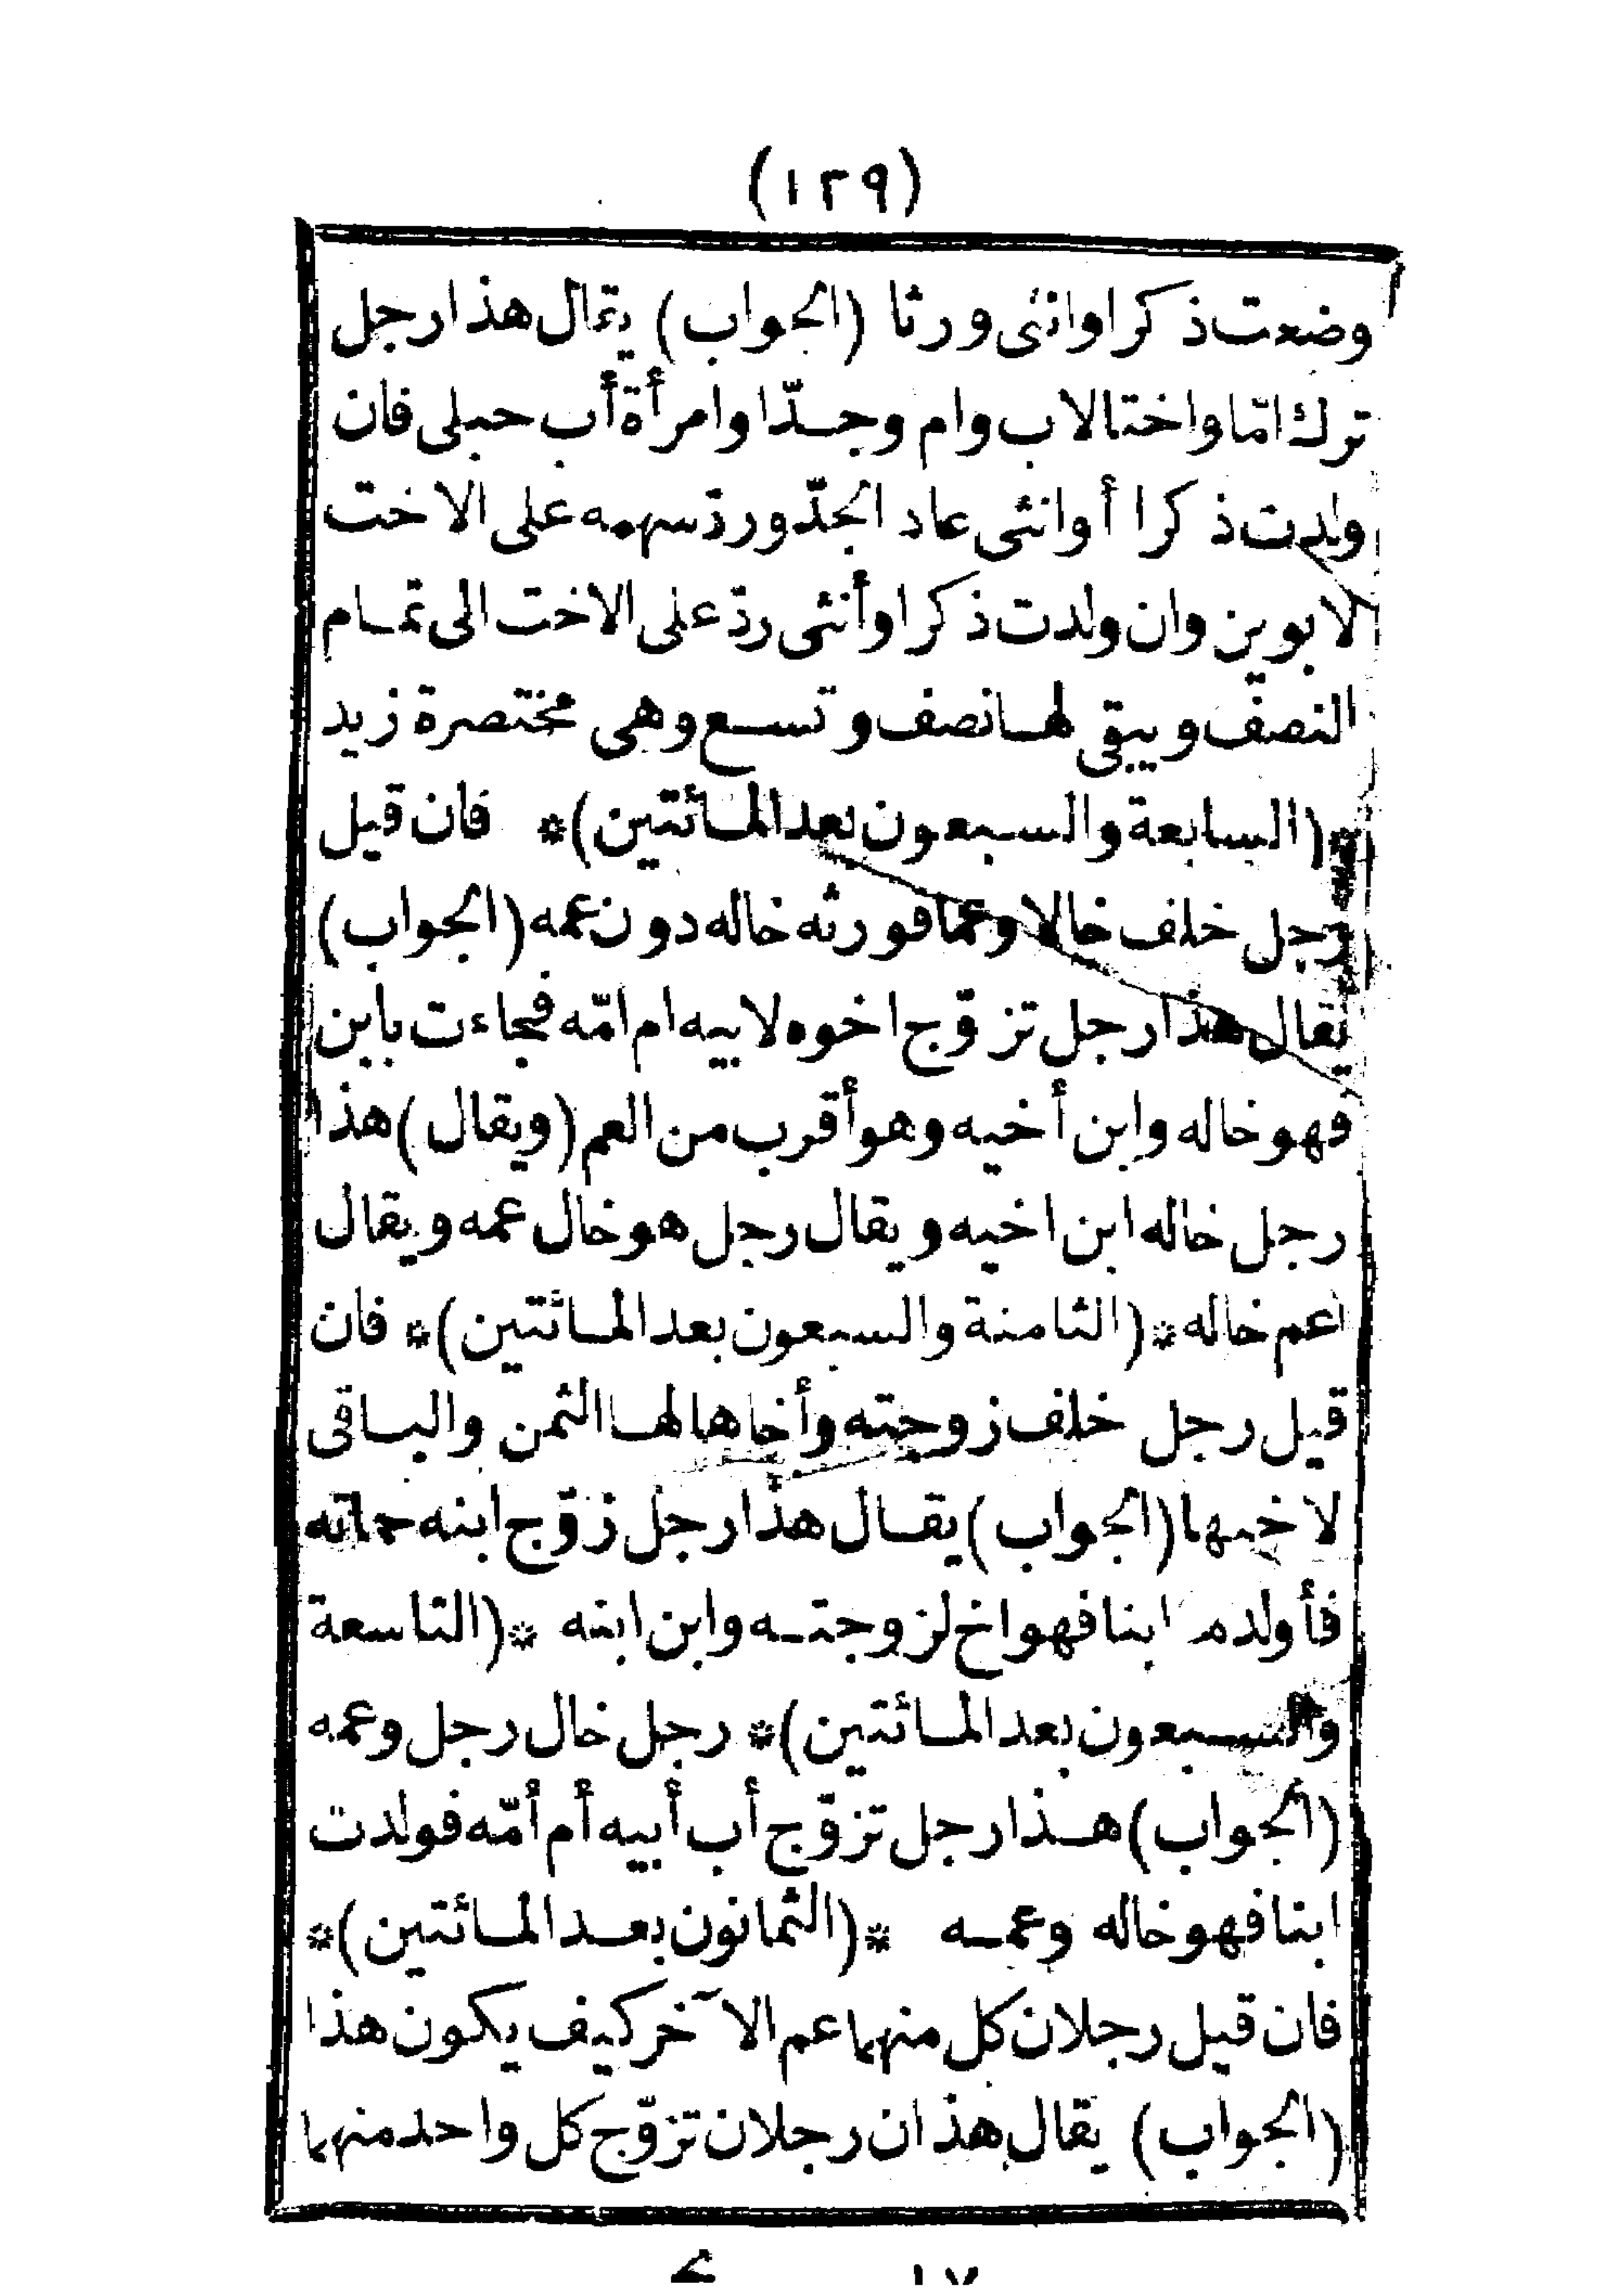 (١٢٩)
وضعت ذكرا وانثى ورثا (الجواب) يقال هذا رجل
ترك امّا واختا لاب وام وجدّا وامرأة أب حبلى فان
ولدت ذكرا أوانثى عاد الجدّ وردّ سهمه على الاخت
لابوين وان ولدت ذكرا وأنثى ردّ على الاخت الى تمام
النصف ويبقى لها نصف وتسع وهى مختصرة زيد
*(السابعة والسبعون بعد المائتين)* فان قيل
رجل خلف خالا وعما فورثه خاله دون عمه (الجواب)
يقال هذا رجل تزوّج اخوه لابيه ام امّه فجاءت بابن
فهو خاله وابن أخيه وهو أقرب من العم (ويقال) هذا
رجل خاله ابن اخيه ويقال رجل هو خال عمه ويقال
عم خاله *(الثامنة والسبعون بعد المائتين)* فان
قيل رجل خلف زوجته وأخاها لها الثمن والباقى
لاخيها (الجواب) يقال هذا رجل زوّج ابنه حماته
فأولدها ابنا فهو اخ لزوجته وابن ابنه *(التاسعة
والسبعون بعد المائتين)* رجل خال رجل وعمه
(الجواب) هذا رجل تزوّج أب أبيه أم أمّه فولدت
ابنا فهو خاله وعمه *(الثمانون بعد المائتين)*
فان قيل رجلان كل منهما عم الآخر كيف يكون هذا
(الجواب) يقال هذان رجلان تزوّج كل واحد منهما
١٧ ع